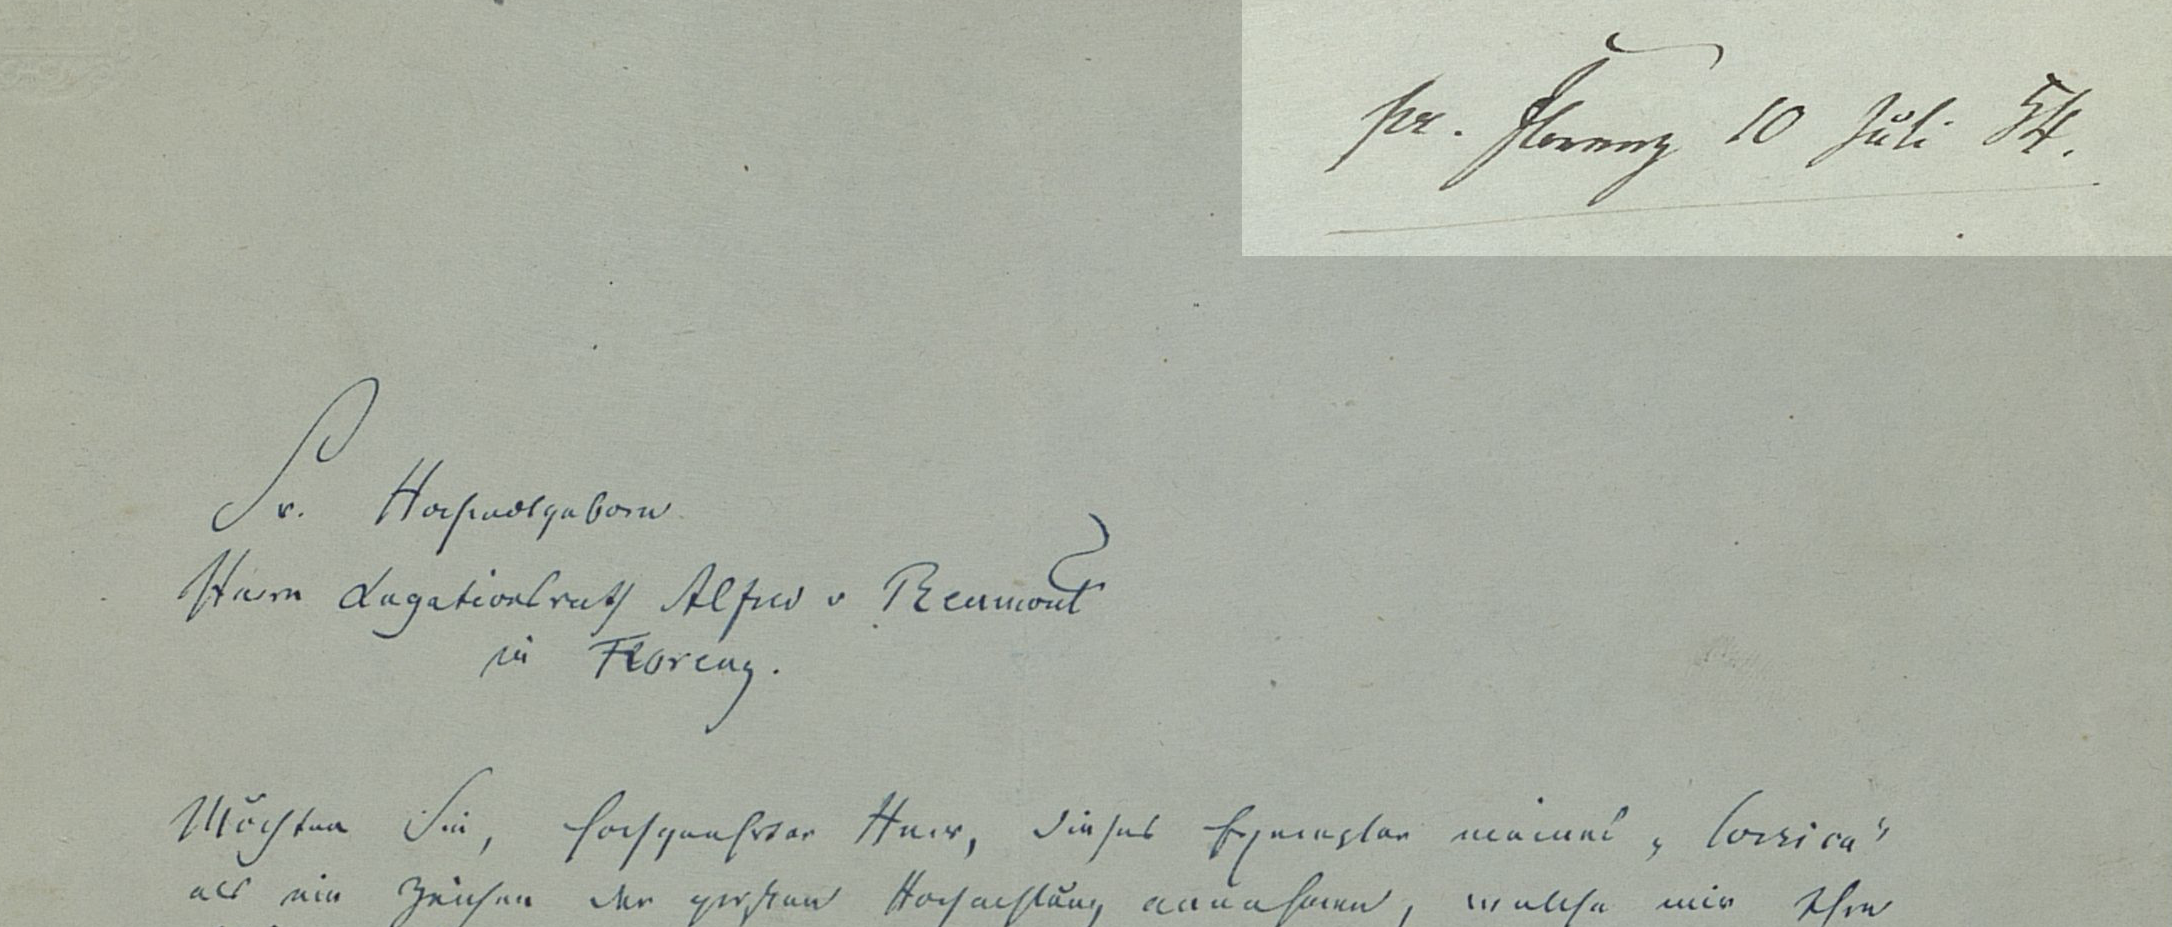 pr. Florenz 10 Juli 54.
Sr. Hochwolgeborn
Herrn Legationsrath Alfred v Reumont
in Florenz.
Möchten Sie, hochgeehrter Herr, dieses Exemplar meines „Corsica“
als ein Zeichen der Hochachtung annehmen, welche mir Ihre